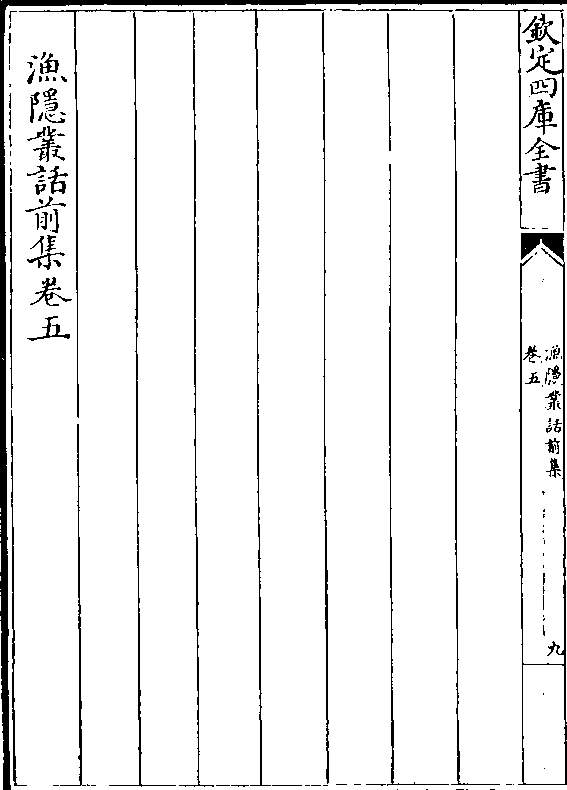 欽定四庫全書
漁隱叢話前集
卷五
九
漁隱叢話前集卷五